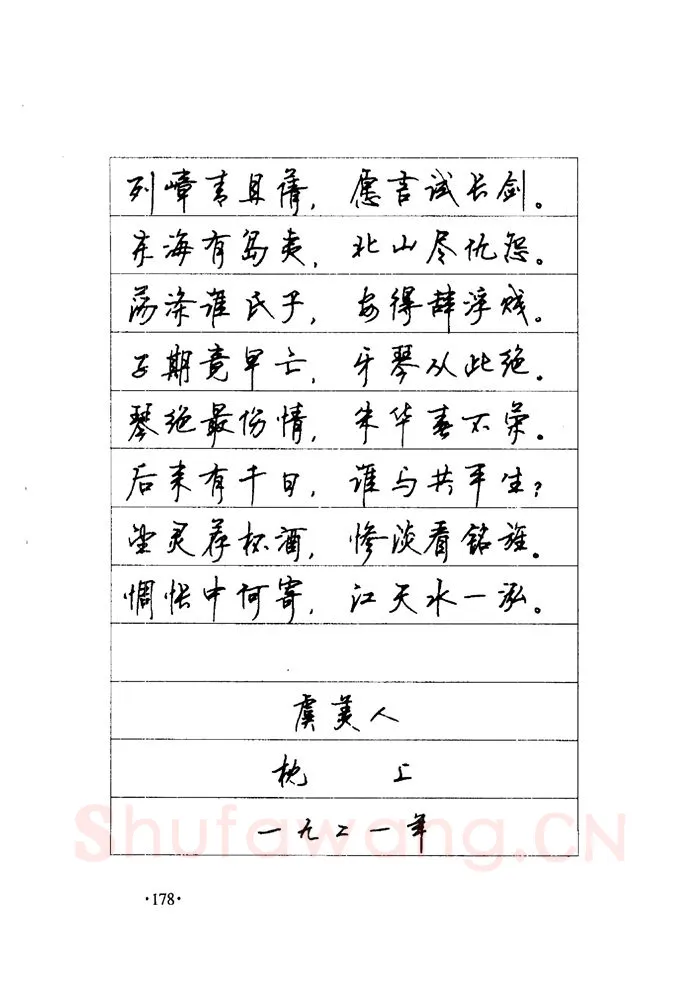 列嶂青且茜，愿言试长剑。
东海有岛夷，北山尽仇怨。
荡涤谁氏子，安得辞浮贱。
子期竟早亡，牙琴从此绝。
琴绝最伤情，朱华春不荣。
后来有千日，谁与共平生？
望灵荐杯酒，惨淡看铭旌。
惆怅中何寄，江天水一泓。
虞美人
枕 上
一九二一年
Shufawang.CN
·178·